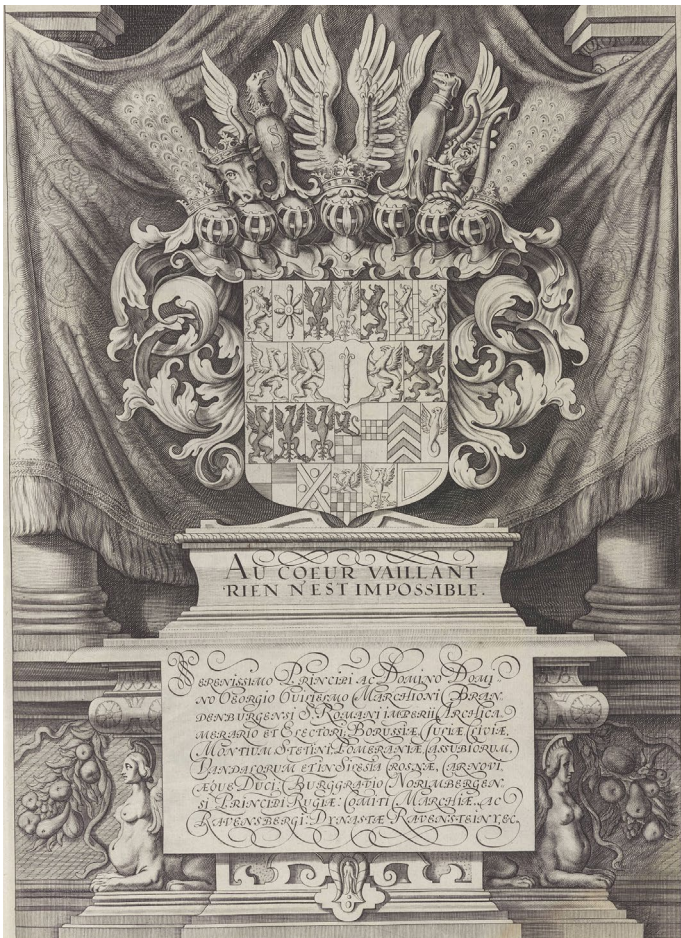 AU COEUR VAILLANT
RIEN N'EST IMPOSSIBLE.
SERENISSIMO PRINCIPI AC DOMINO DOMI=
NO GEORGIO GUILIELMO MARCHIONI BRAN
DENBURGENSI S. ROMANI IMPERII ARCHICA
MERARIO ET ELECTORI, BORUSSIÆ JULIÆ CLIVIÆ,
MONTIUM STETINI, POMERANIÆ CASSUBIORUM,
VANDALORUM ET IN SILESIA CROSNÆ, CARNOVI
ÆQUE DUCI, BURGGRAVIO NORIMBERGEN
SI PRINCIPI RUGIÆ: COMITI MARCHIÆ. AC
RAVENSBERGI. DYNASTÆ RAVENSTEINY, &C.